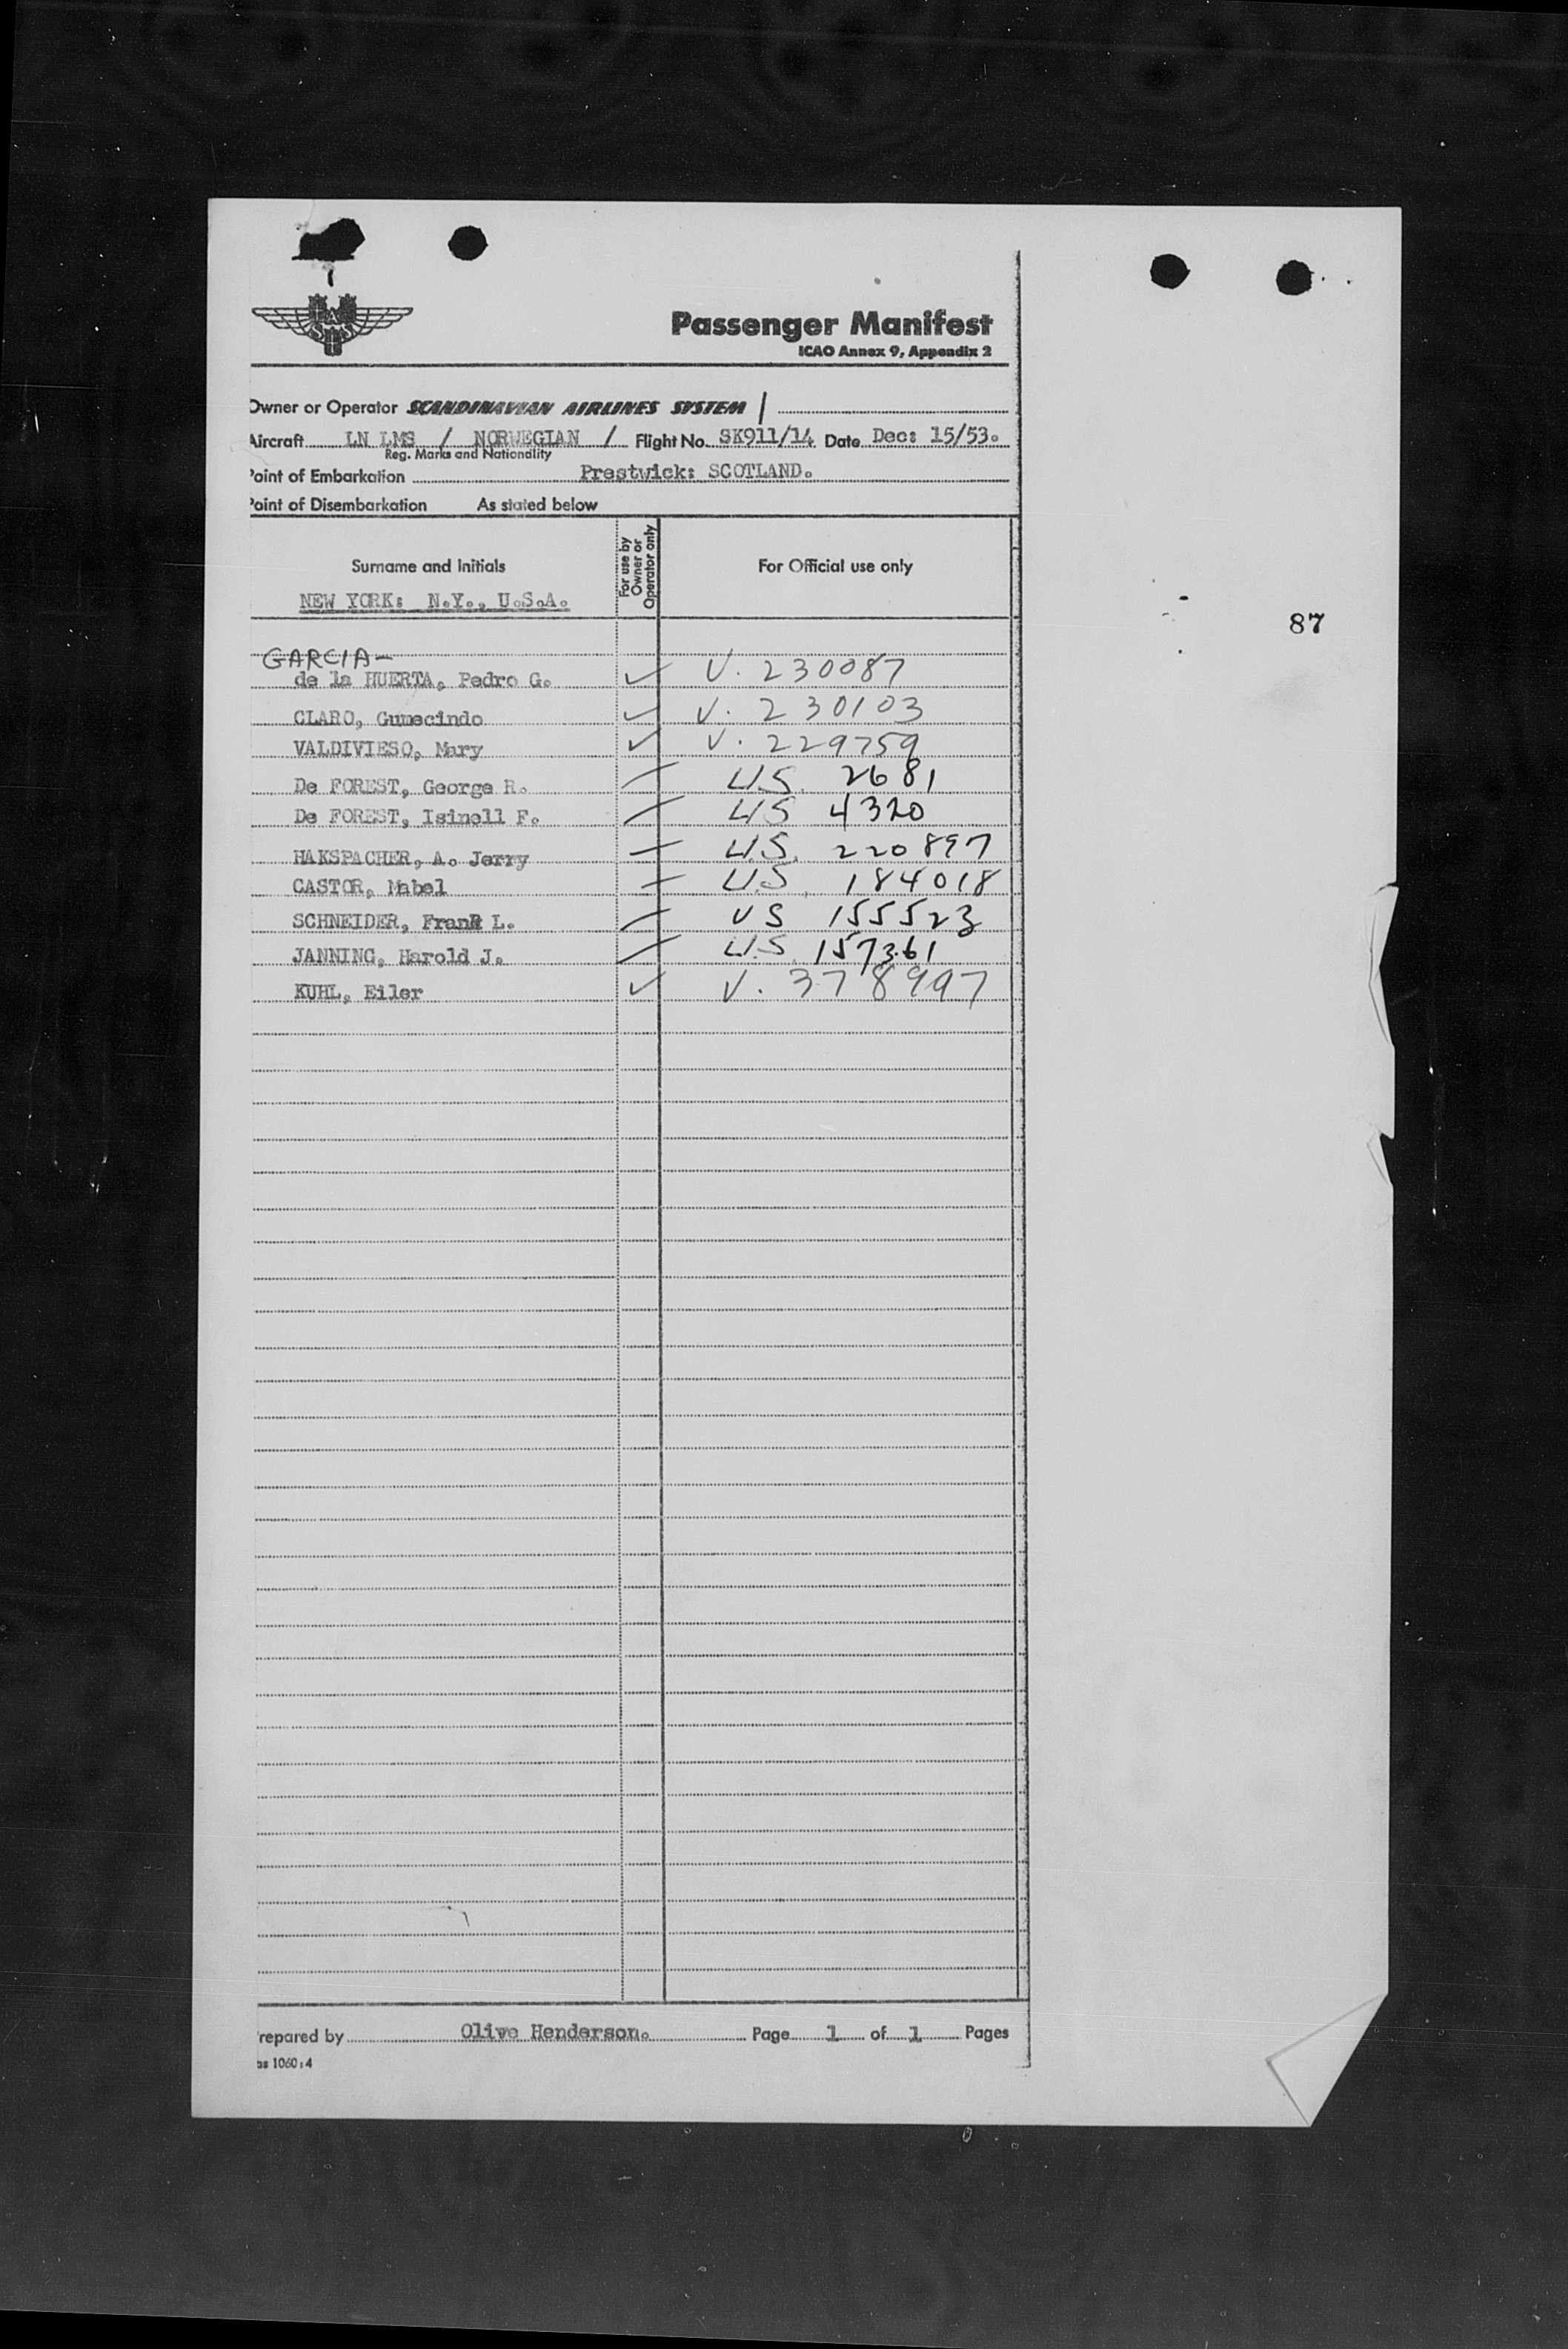 SAS
Passenger Manifest
ICAO Annex 9, Appendix 2
Owner or Operator SCANDINAVIAN AIRLINES SYSTEM /
Aircraft LN LMS / NORWEGIAN / Flight No. SK911/14 Date Dec: 15/53.
Reg. Marks and Nationality
Point of Embarkation Prestwick: SCOTLAND.
Point of Disembarkation As stated below
Surname and Initials For use by Owner or Operator only For Official use only
NEW YORK: N.Y., U.S.A.
87
GARCIA-
de la HUERTA, Pedro G. ✓ V. 230087
CLARO, Gumecindo ✓ V. 230103
VALDIVIESO, Mary ✓ V. 229759
De FOREST, George R. U.S. 2681
De FOREST, Isinell F. US 4320
HAKSPACHER, A. Jerry U.S. 220897
CASTOR, Mabel U.S. 184018
SCHNEIDER, Frank L. US 155523
JANNING, Harold J. U.S. 157361
KUHL, Eiler ✓ V. 378997
repared by Olive Henderson. Page 1 of 1 Pages
as 1060:4